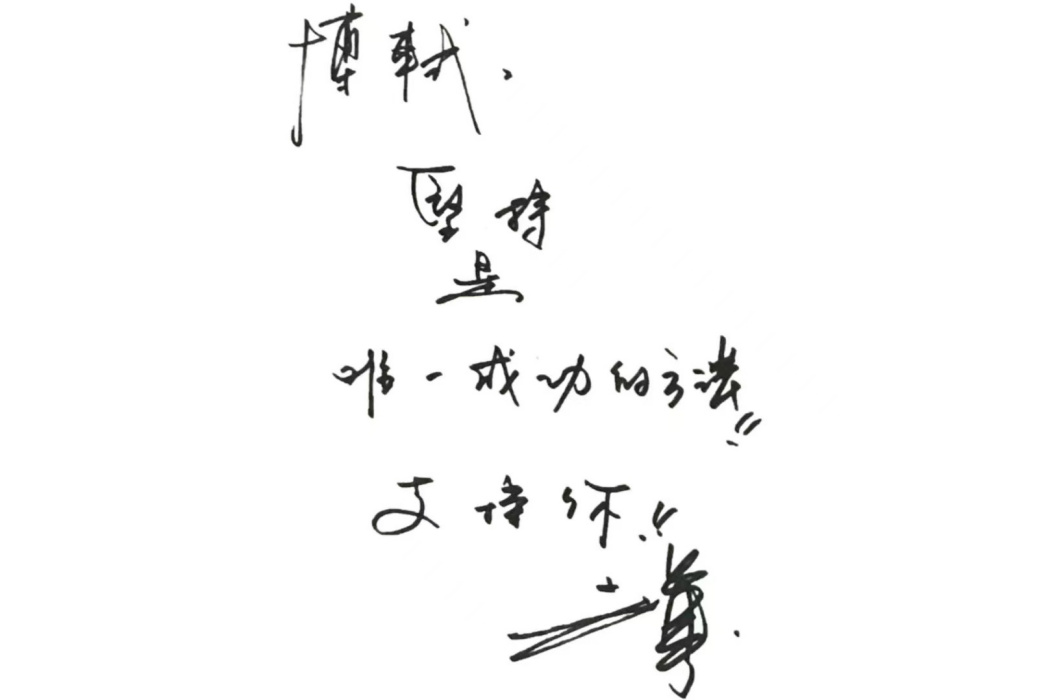 博軾、
堅持
是
唯一成功的方法!!
支持你!!